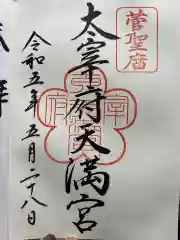 菅聖庿
太宰府天満宮
令和五年五月二十八日
拝